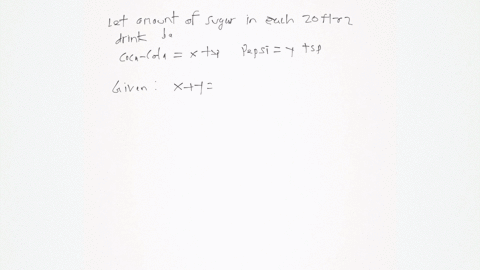 Let amount of sugar in each 20 fl oz
drink be
Coca-Cola = x tsp Pepsi = y tsp
Given : x+y=